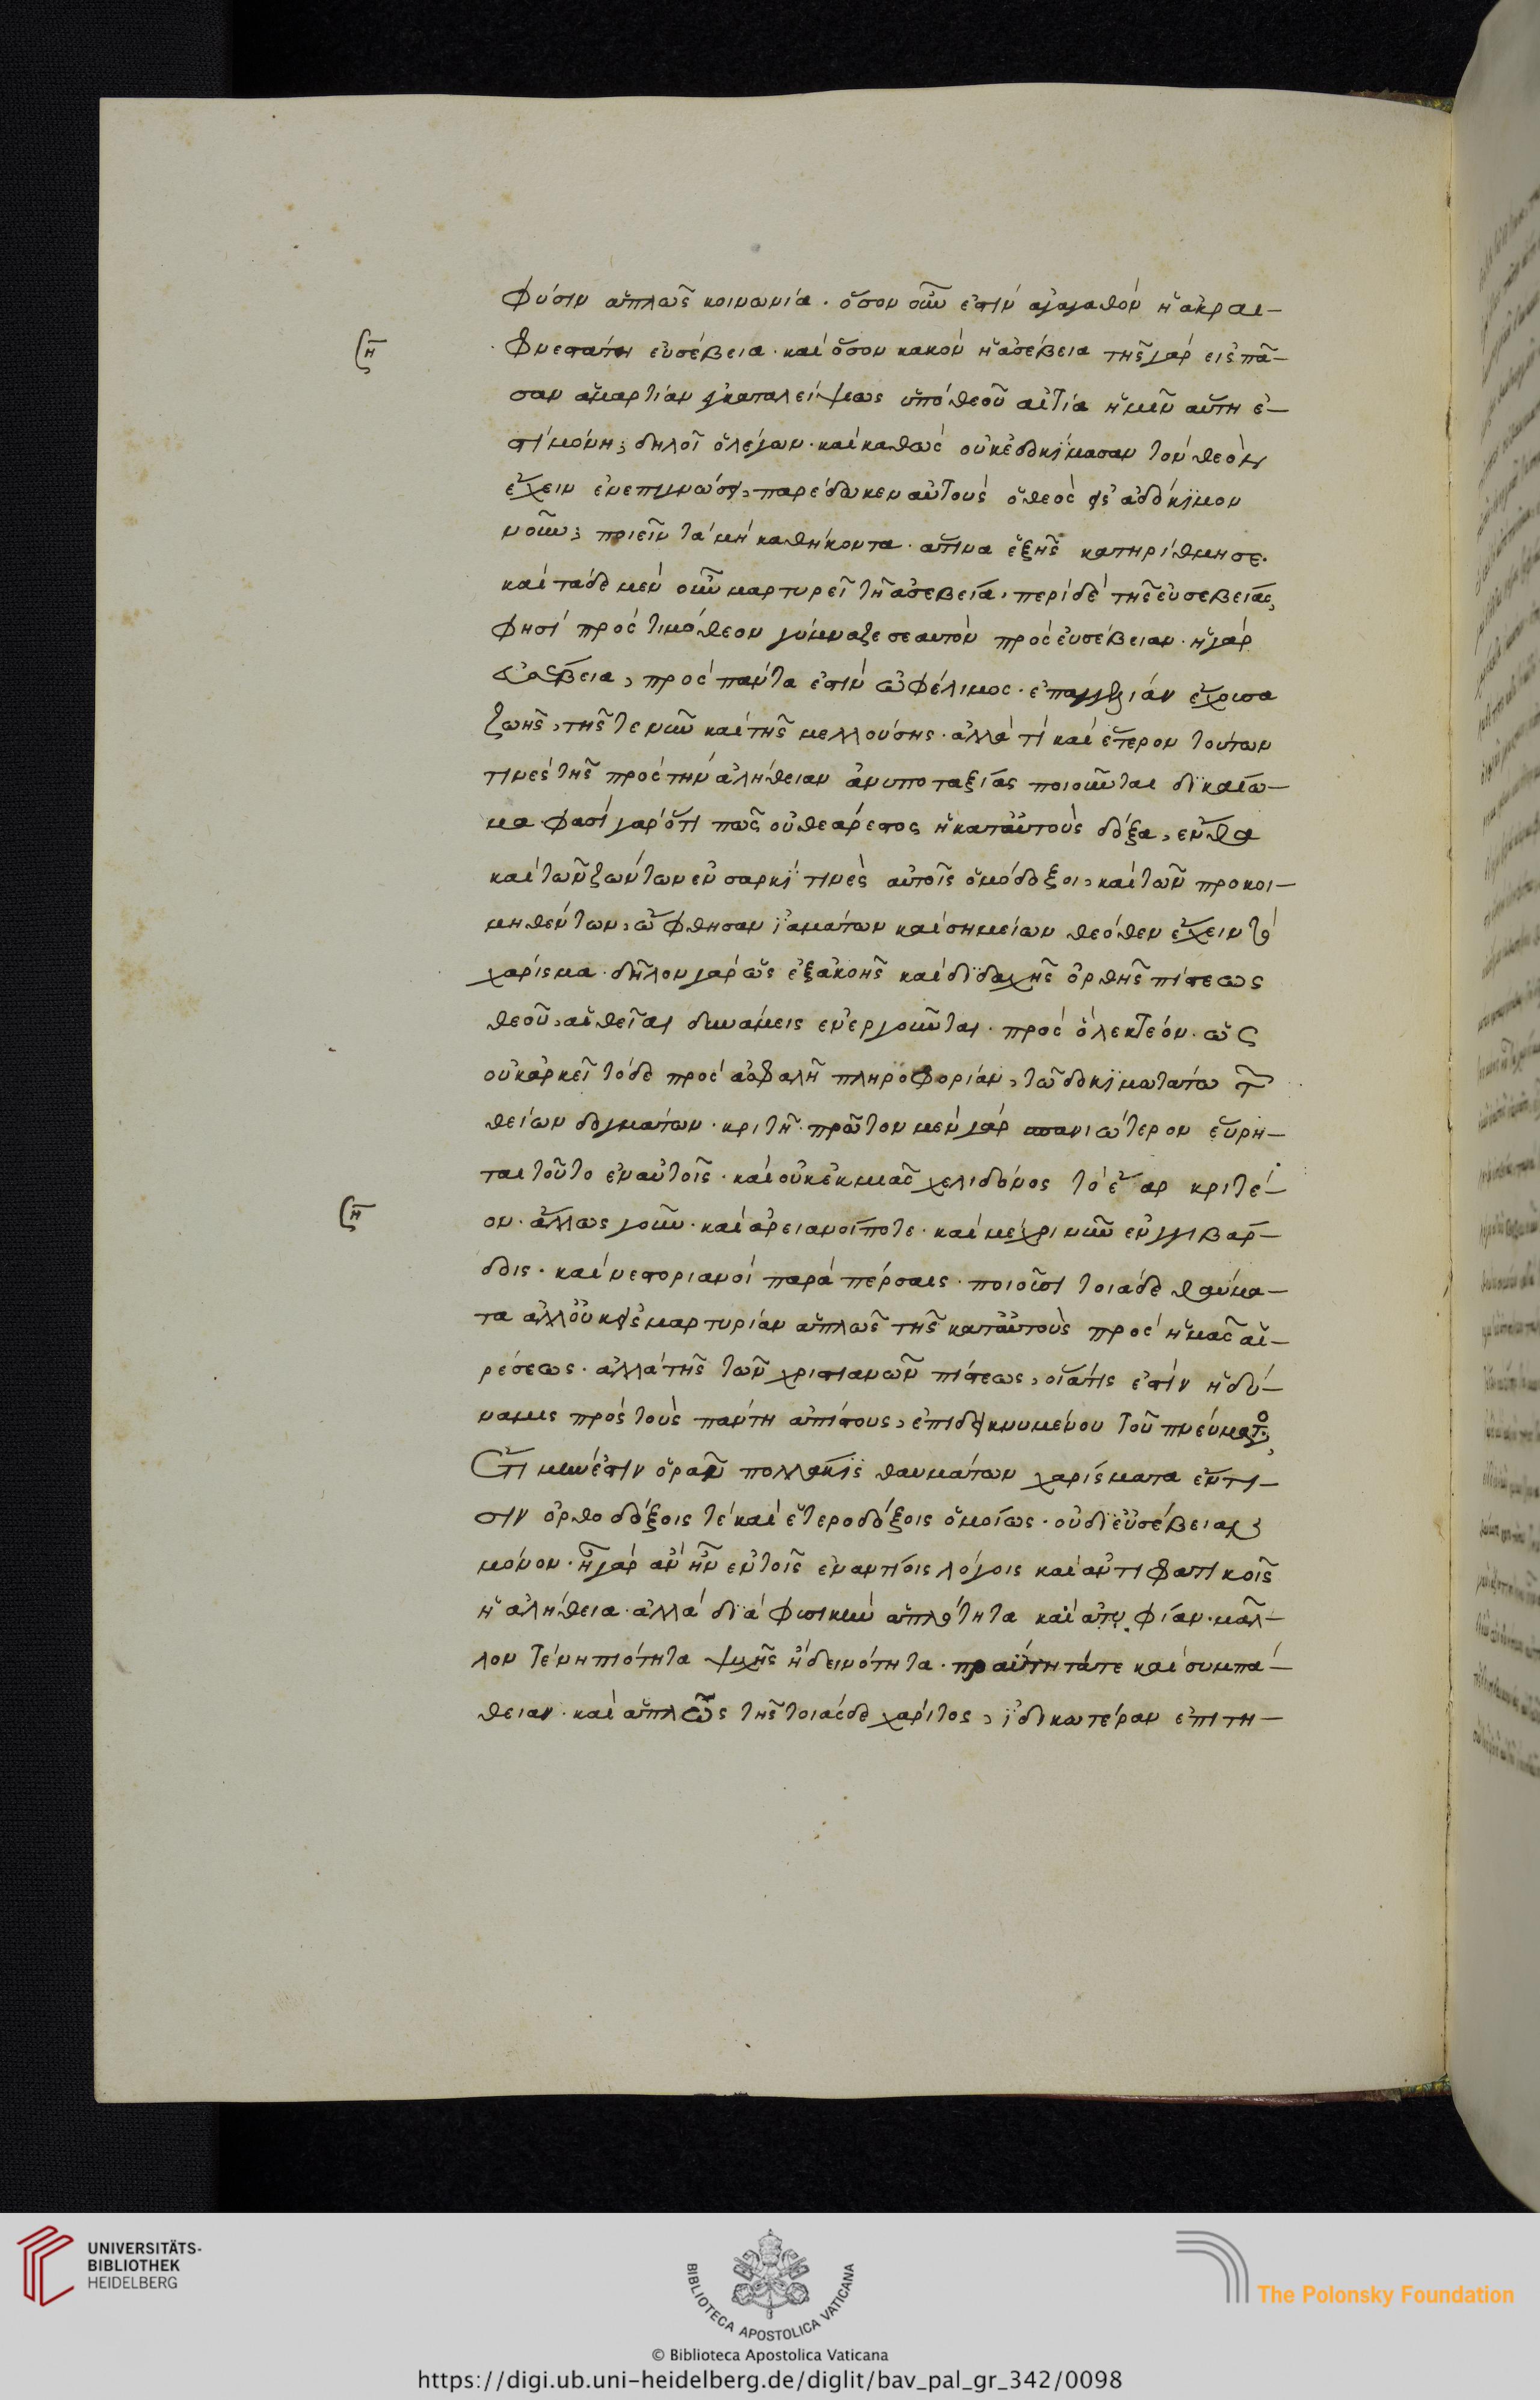 φύσιν ἁπλῶς κοινωνία· ὅσον οὖν ἐστὶν ἀγαθὸν ἡ ἀκραι-
φνεστάτη εὐσέβεια· καὶ ὅσον κακὸν ἡ ἀσέβεια τῆς γὰρ εἰς πᾶ-
σαν ἁμαρτίαν ἐγκαταλείψεως ὑπὸ θεοῦ αἰτία ἡμῖν αὕτη ἐ-
στὶ μόνη; δηλοῖ ὁ λέγων· καὶ καθὼς οὐκ ἐδοκίμασαν τὸν θεὸν
ἔχειν ἐν ἐπιγνώσει, παρέδωκεν αὐτοὺς ὁ θεὸς εἰς ἀδόκιμον
νοῦν; ποιεῖν τὰ μὴ καθήκοντα· ἅτινα ἑξῆς κατηρίθμησε.
καὶ τάδε μὲν οὖν μαρτυρεῖ τῆ ἀσεβεία, περὶ δὲ τῆς εὐσεβείας,
φησὶ πρὸς τιμόθεον γύμναζε σεαυτὸν πρὸς εὐσέβειαν· ἡ γὰρ
εὐσέβεια, πρὸς πάντα ἐστὶν ὠφέλιμος· ἐπαγγελίαν ἔχουσα
ζωῆς, τῆς τε νῦν καὶ τῆς μελλούσης· ἀλλά τι καὶ ἕτερον τούτων
τινὲς τῆς πρὸς τὴν ἀλήθειαν ἀνυποταξίας ποιοῦνται δικαίω-
μα· φασὶ γὰρ ὅτι πῶς οὐ θεάρεστος ἡ κατ' αὐτοὺς δόξα, ἔνθα
καὶ τῶν ζώντων ἐν σαρκί τινὲς αὐτοῖς ὁμόδοξοι, καὶ τῶν προκοι-
μηθέντων, ὤφθησαν ἰαμάτων καὶ σημείων θεόθεν ἔχειν τὸ
χάρισμα· δῆλον γὰρ ὡς ἐξ ἀκοῆς καὶ διδαχῆς ὀρθῆς πίστεως
θεοῦ, αἱ θεῖαι δυνάμεις ἐνεργοῦνται· πρὸς ὃ λεκτέον· ὡς
οὐκ ἀρκεῖ τόδε πρὸς ἀσφαλῆ πληροφορίαν, τῶ δοκιμωτάτω τῶν
θείων δογμάτων· κριτῆ· πρῶτον μὲν γὰρ σπανιώτερον εὕρη-
ται τοῦτο ἐν αὐτοῖς· καὶ οὐκ ἐκ μιᾶς χελιδόνος τὸ ἔαρ κριτέ-
ον· ἄλλως γοῦν· καὶ ἀρειανοί ποτε· καὶ μέχρι νῦν ἐν
καὶ νεστοριανοὶ παρὰ πέρσαις· ποιοῦσι τοιάδε θαύμα-
τα ἀλλ' οὐκ εἰς μαρτυρίαν ἁπλῶς τῆς κατ' αὐτοὺς πρὸς ἡμᾶς αἱ-
ρέσεως· ἀλλὰ τῆς τῶν χριστιανῶν πίστεως, οἵα τίς ἐστὶν ἡ δύ-
ναμις πρὸς τοὺς πάντη ἀπίστους, ἐπιδεικνυμένου τοῦ πνεύματος,
Ἔτι μὴν ἔστιν ὁρᾶν πολλάκις θαυμάτων χαρίσματα ἔν τι-
σιν ὀρθοδόξοις τὲ καὶ ἑτεροδόξοις ὁμοίως· οὐ δι' εὐσέβειαν
μόνον· ἦ γὰρ ἂν ἦν ἐν τοῖς ἐναντίοις λόγοις καὶ ἀντιφατικοῖς
ἡ ἀλήθεια· ἀλλὰ διὰ φυσικὴν ἁπλότητα καὶ ἀτυφίαν· μᾶλ-
λον τὲ νηπιότητα ψυχῆς ἢ δεινότητα· πραότητά τε καὶ συμπά-
θειαν· καὶ ἁπλῶς τῆς τοιᾶσδε χάριτος, ἰδικωτέραν ἐπιτη-
UNIVERSITÄTS-
BIBLIOTHEK
HEIDELBERG
BIBLIOTECA APOSTOLICA VATICANA
The Polonsky Foundation
© Biblioteca Apostolica Vaticana
https://digi.ub.uni-heidelberg.de/diglit/bav_pal_gr_342/0098